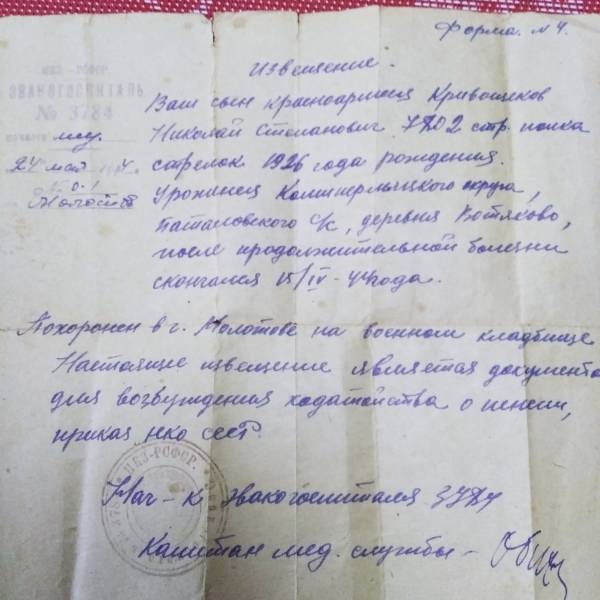 Форма. №4.
Извещение.
НКЗ - РСФСР
ЭВАКОГОСПИТАЛЬ
№ 3784
мед.
24 мая
Молотов
Ваш сын красноармеец Кривощеков
Николай Степанович 2 стр. полка
стрелок 1926 года рождения.
Уроженец Коми округа,
с/с, деревня Вотяково,
после продолжительной болезни
скончался 15/IV - 44 года.
Похоронен в г. Молотове на военном кладбище
Настоящее извещение является документо
для возбуждения ходатайства о пенсии,
приказ НКО СССР.
НКЗ-РСФСР
Нач-к эвакогоспиталя 3784
Капитан мед. службы -